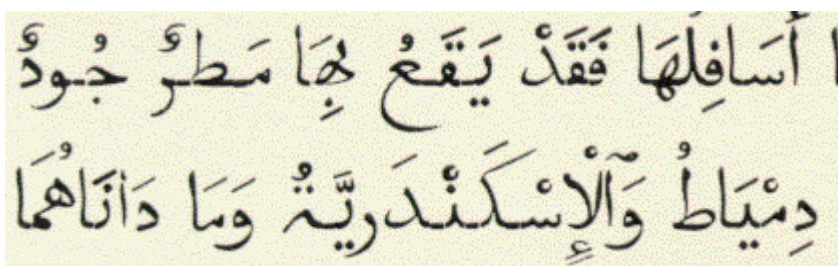 ا أَسَافِلُهَا فَقَدْ يَقَعُ بِهَا مَطَرٌ جُودٌ
دِمْيَاطُ وَٱلْإِسْكَنْدَرِيَّةُ وَمَا دَانَاهُمَا